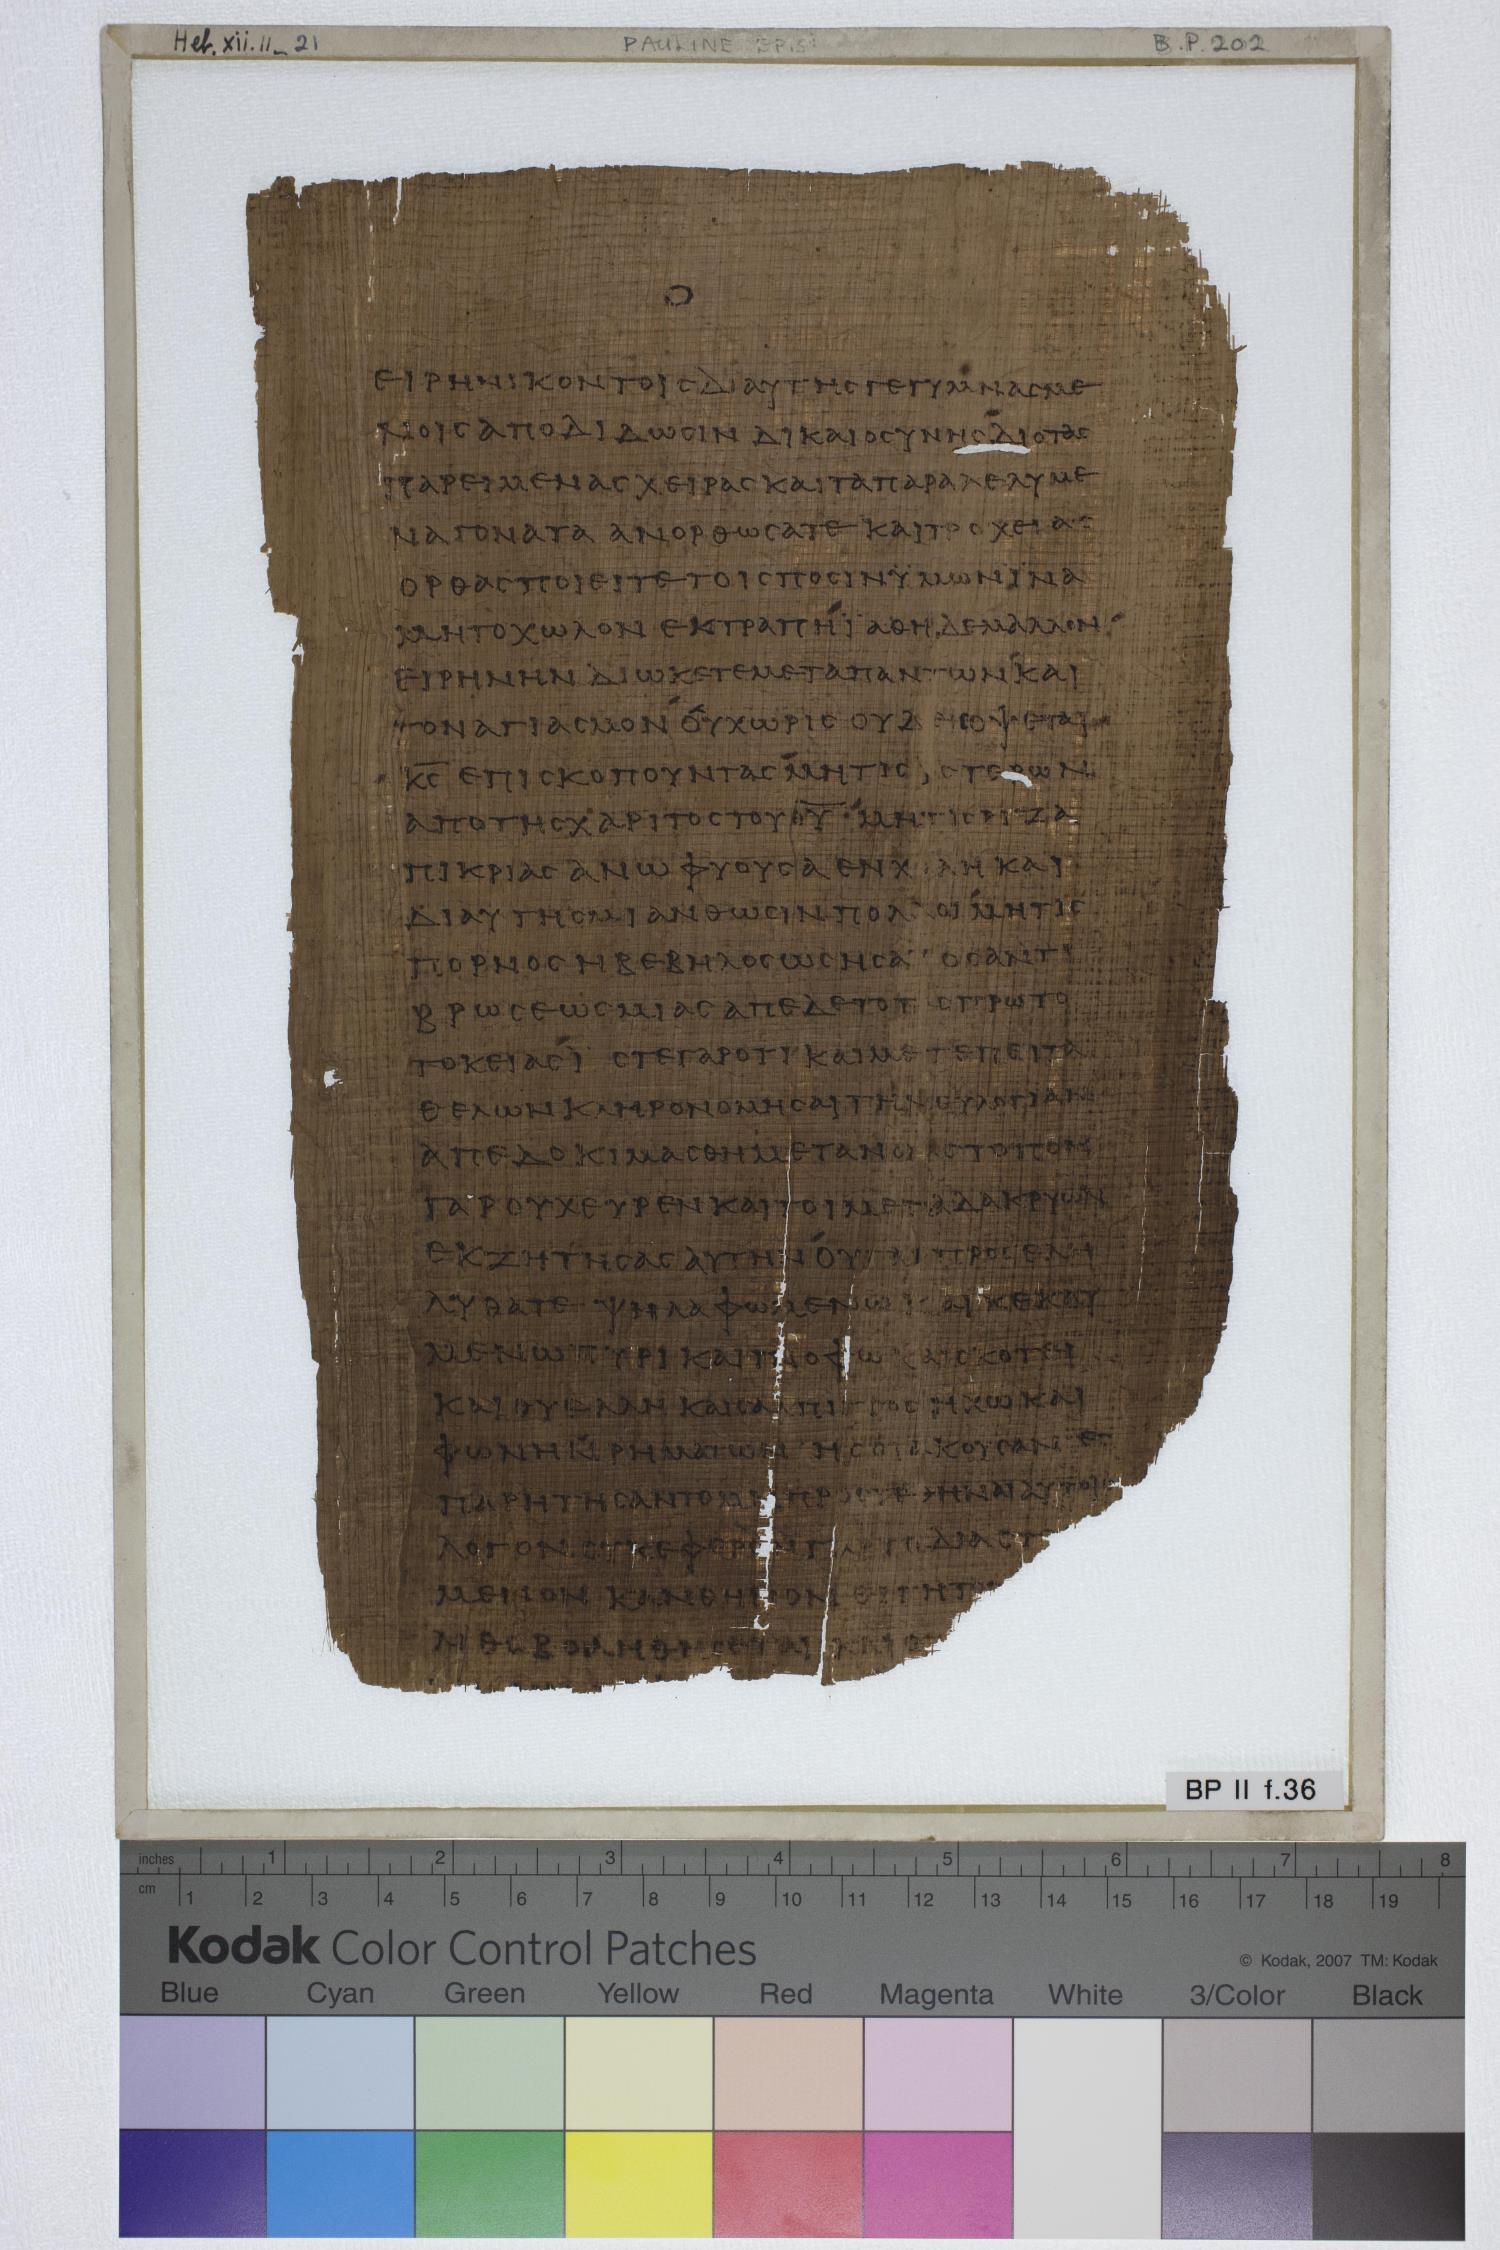 Heb. xii. 11–21
PAULINE EPIS
B.P. 202
Ο
ΕΙΡΗΝΙΚΟΝ ΤΟΙϹ ΔΙ ΑΥΤΗϹ ΓΕΓΥΜΝΑϹΜΕ
ΝΟΙϹ ΑΠΟΔΙΔΩϹΙΝ ΔΙΚΑΙΟϹΥΝΗϹ ΔΙΟ ΤΑϹ
ΠΑΡΕΙΜΕΝΑϹ ΧΕΙΡΑϹ ΚΑΙ ΤΑ ΠΑΡΑΛΕΛΥΜΕ
ΝΑ ΓΟΝΑΤΑ ΑΝΟΡΘΩϹΑΤΕ ΚΑΙ ΤΡΟΧΕΙΑϹ
ΟΡΘΑϹ ΠΟΙΕΙΤΕ ΤΟΙϹ ΠΟϹΙΝ ΫΜΩΝ ΪΝΑ
ΜΗ ΤΟ ΧΩΛΟΝ ΕΚΤΡΑΠΗ ΪΑΘΗ ΔΕ ΜΑΛΛΟΝ
ΕΙΡΗΝΗΝ ΔΙΩΚΕΤΕ ΜΕΤΑ ΠΑΝΤΩΝ ΚΑΙ
ΤΟΝ ΑΓΙΑϹΜΟΝ ΟΥ ΧΩΡΙϹ ΟΥΔΕΙϹ ΟΨΕΤΑΙ
Κ̅Ϲ̅ ΕΠΙϹΚΟΠΟΥΝΤΑϹ ΜΗ ΤΙϹ ΥϹΤΕΡΩΝ
ΑΠΟ ΤΗϹ ΧΑΡΙΤΟϹ ΤΟΥ Θ̅Υ̅ ΜΗ ΤΙϹ ΡΙΖΑ
ΠΙΚΡΙΑϹ ΑΝΩ ΦΥΟΥϹΑ ΕΝΧΟΛΗ ΚΑΙ
ΔΙ ΑΥΤΗϹ ΜΙΑΝΘΩϹΙΝ ΠΟΛΛΟΙ ΜΗ ΤΙϹ
ΠΟΡΝΟϹ Η ΒΕΒΗΛΟϹ ΩϹ ΗϹΑΥ ΟϹ ΑΝΤΙ
ΒΡΩϹΕΩϹ ΜΙΑϹ ΑΠΕΔΕΤΟ ΤΑϹ ΠΡΩΤΟ
ΤΟΚΕΙΑϹ ΪϹΤΕ ΓΑΡ ΟΤΙ ΚΑΙ ΜΕΤΕΠΕΙΤΑ
ΘΕΛΩΝ ΚΛΗΡΟΝΟΜΗϹΑΙ ΤΗΝ ΕΥΛΟΓΙΑΝ
ΑΠΕΔΟΚΙΜΑϹΘΗ ΜΕΤΑΝΟΙΑϹ ΤΟΠΟΝ
ΓΑΡ ΟΥΧ ΕΥΡΕΝ ΚΑΙΤΟΙ ΜΕΤΑ ΔΑΚΡΥΩΝ
ΕΚΖΗΤΗϹΑϹ ΑΥΤΗΝ ΟΥ ΓΑΡ ΠΡΟϹΕΛΗ
ΛΥΘΑΤΕ ΨΗΛΑΦΩΜΕΝΩ ΚΑΙ ΚΕΚΑΥ
ΜΕΝΩ ΠΥΡΙ ΚΑΙ ΓΝΟΦΩ ΚΑΙ ϹΚΟΤΕΙ
ΚΑΙ ΘΥΕΛΛΗ ΚΑΙ ϹΑΛΠΙΓΓΟϹ ΗΧΩ ΚΑΙ
ΦΩΝΗ ΡΗΜΑΤΩΝ ΗϹ ΟΙ ΑΚΟΥϹΑΝΤΕϹ
ΠΑΡΗΤΗϹΑΝΤΟ ΜΗ ΠΡΟϹΤΕΘΗΝΑΙ ΑΥΤΟΙϹ
ΛΟΓΟΝ ΟΥΚ ΕΦΕΡΟΝ ΓΑΡ ΤΟ ΔΙΑϹΤ
ΜΕΝΟΝ ΚΑΝ ΘΗΡΙΟΝ ΘΙΓΗ ΤΟΥ
ΛΙΘΟΒΟΛΗΘΗϹΕΤΑΙ ΚΑΙ
BP II f.36
inches 1 2 3 4 5 6 7 8
cm 1 2 3 4 5 6 7 8 9 10 11 12 13 14 15 16 17 18 19
Kodak Color Control Patches
© Kodak, 2007 TM: Kodak
Blue Cyan Green Yellow Red Magenta White 3/Color Black